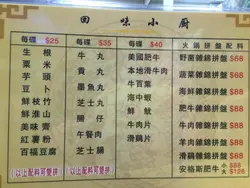 回味小廚
每碟 $25
生根
粟米
芋頭
豆卜
鮮枝竹
鮮淮山
美味齊
紅薯粉
百福豆腐
(以上配料可雙拼)
每碟 $35
牛丸
貢丸
墨魚丸
芝士丸
腸仔
午餐肉
芝士腸
(以上配料可雙拼)
每碟 $40
美國肥牛
本地滑牛肉
牛百葉
海中蝦
鮮魷
牛肉片
滑雞片
火鍋拼盤配料
野菌雜錦拼盤 $68
肥牛雜錦拼盤 $88
牛肉雜錦拼盤 $88
海鮮雜錦拼盤 $88
羊肉雜錦拼盤 $88
滑雞雜錦拼盤 $88
安格斯肥牛 $88
$128